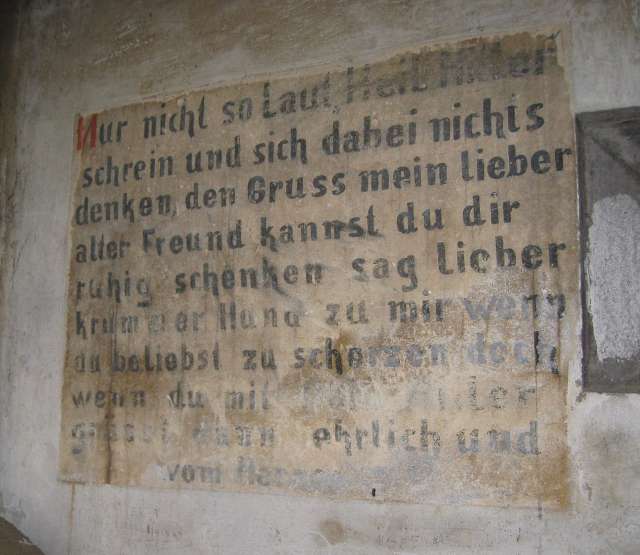 Nur nicht so laut, Heil Hitler
schrein und sich dabei nichts
denken, den Gruss mein lieber
alter Freund kannst du dir
ruhig schenken sag lieber
krummer Hund zu mir wenn
du beliebst zu scherzen doch
wenn du mit Heil Hitler
grüsst dann ehrlich und
vom